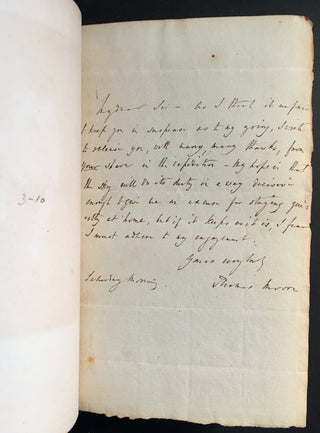 My dear Sir – As I think it unfair
to keep you in suspense as to my going, I wish
to release you, with many, many thanks, from
your share in the expedition – My hope is that
the sky will do its duty in a way decisive
enough to give me an excuse for staying qui-
etly at home, but if it keeps as it is, I fear
I must adhere to my engagement.
Yours
Saturday Morning. Thomas Moore
3-10